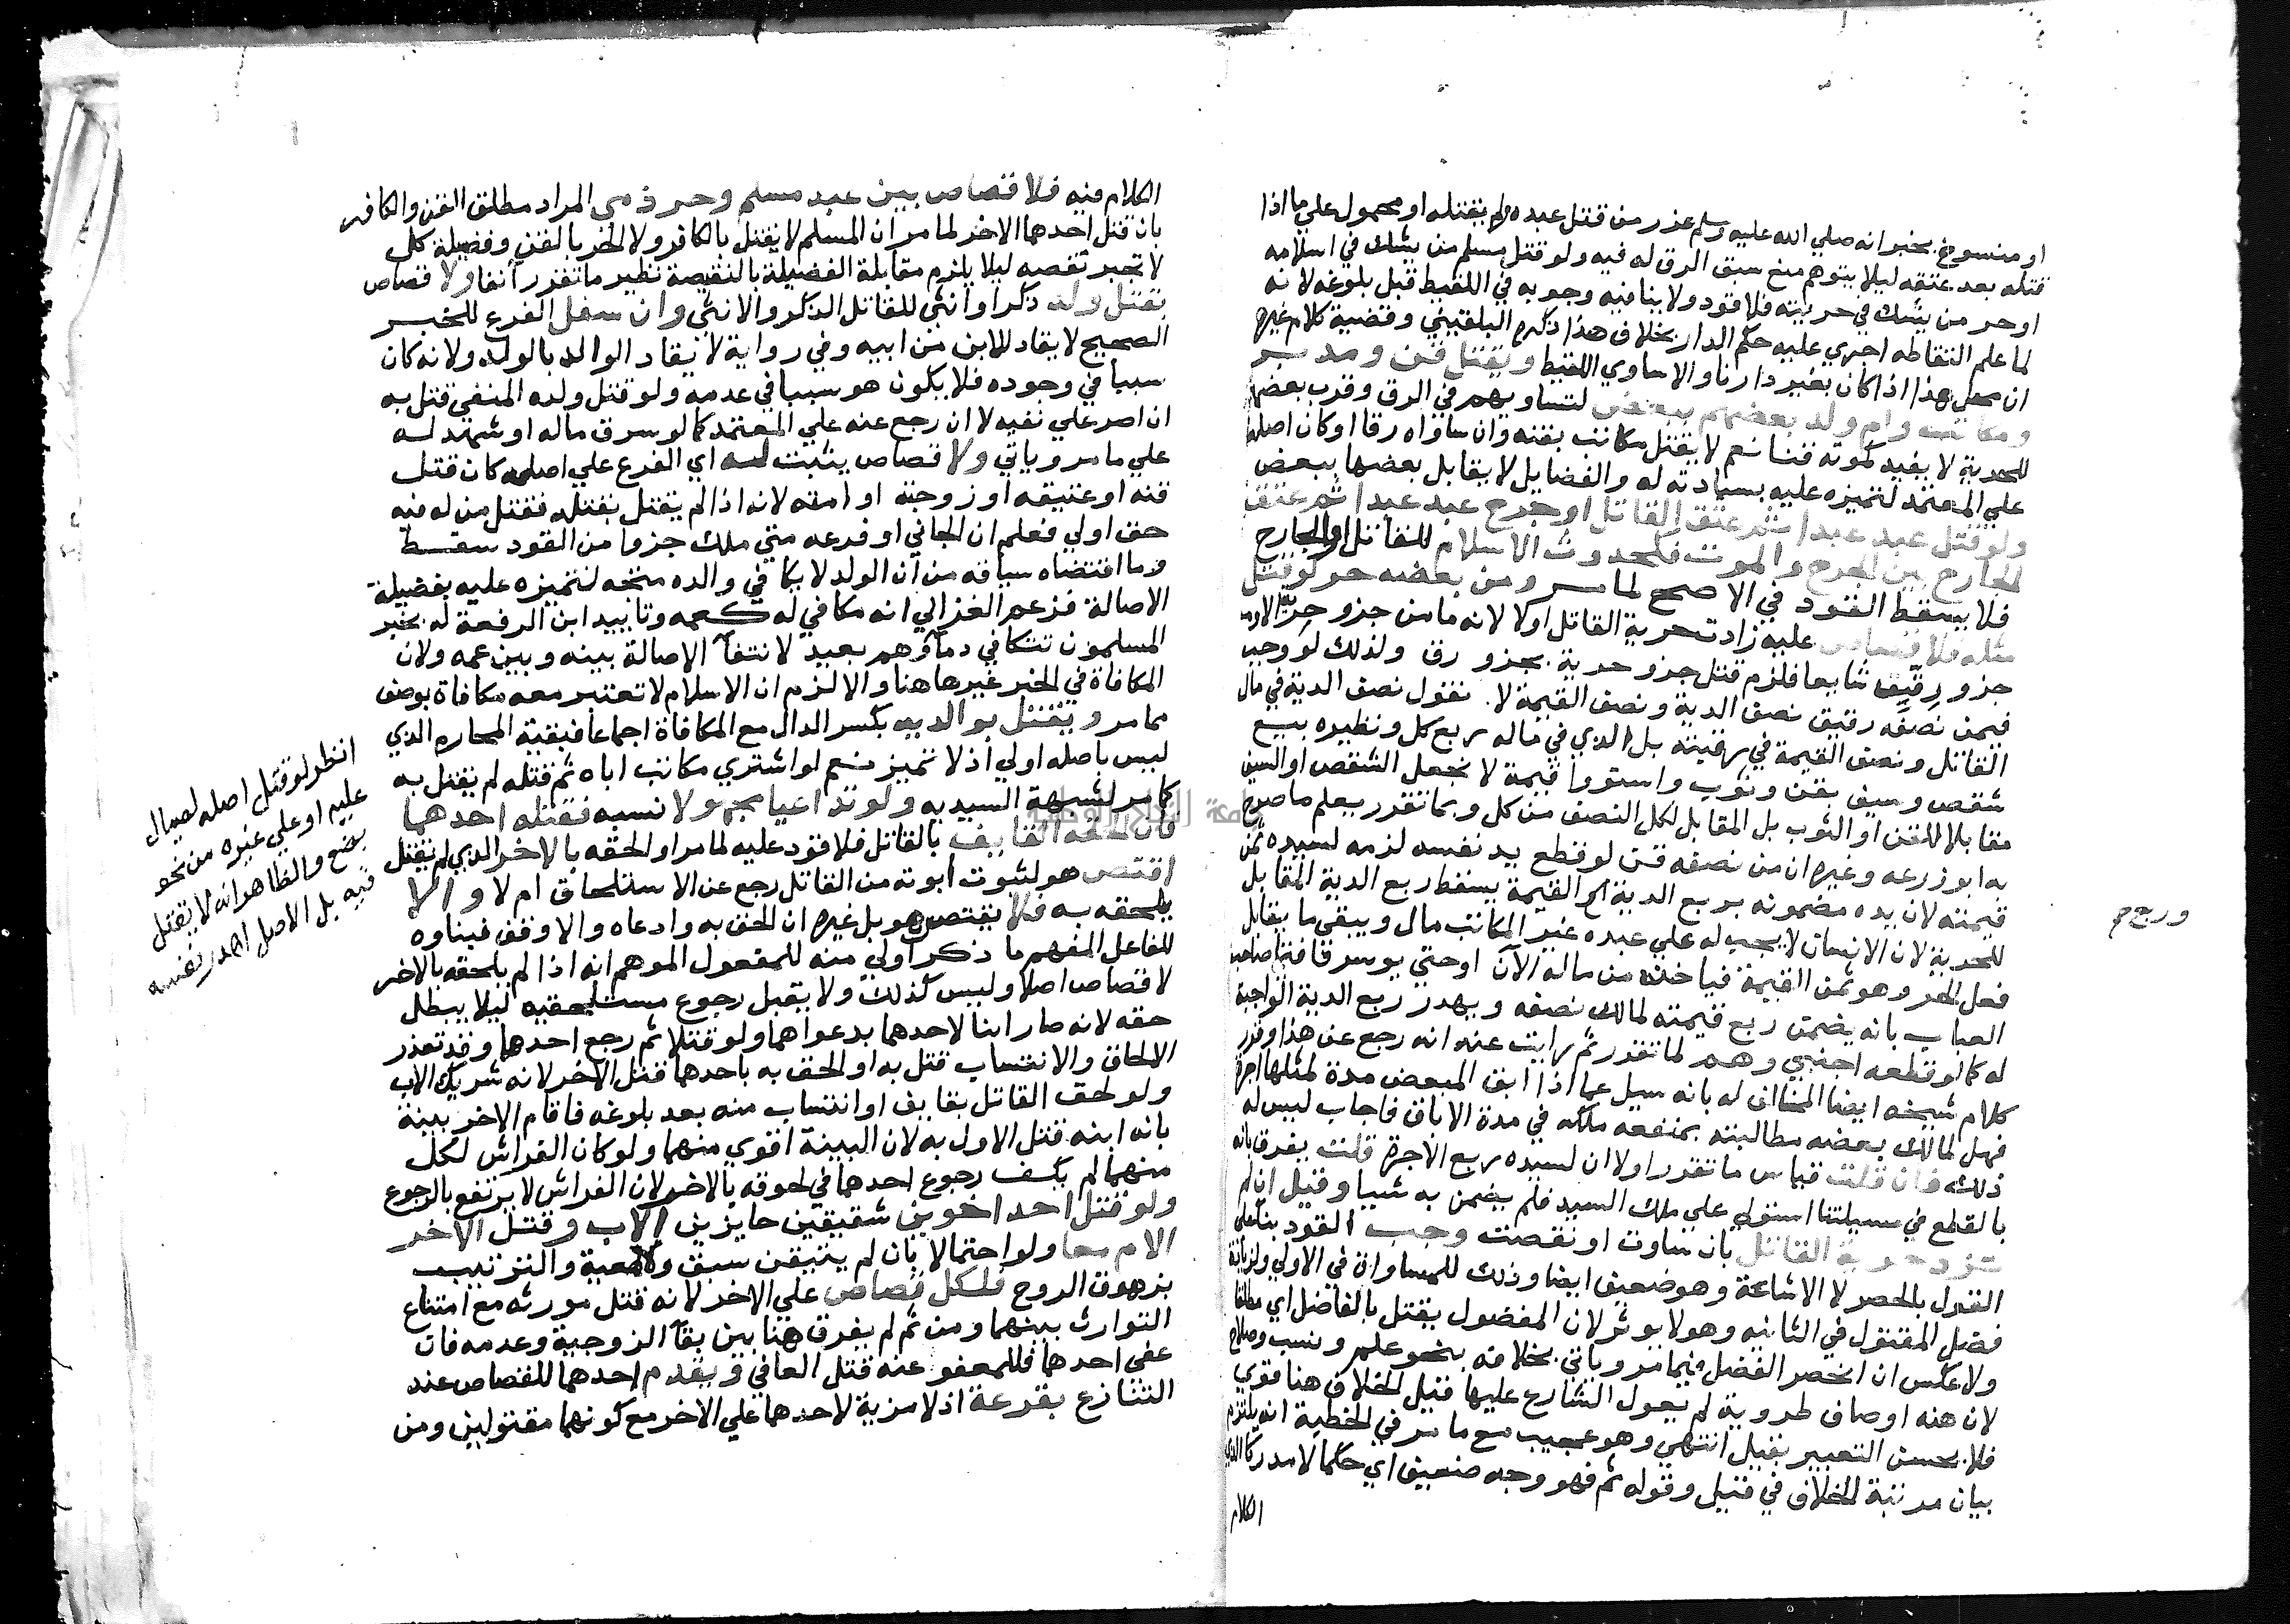 او منسوخ بخبر انه صلي الله عليه وسلم عذر من قتل عبده ولم يقتله او محمول علي ما اذا
قتله بعد عتقه ليلا يتوهم منع سبق الرق له فيه ولو قتل مسلم من يشك في اسلامه
او حر من يشك في حريته فلا قود ولا ينافيه وجوبه في اللقيط قبل بلوغه لانه
لما علم التقاطه اجري عليه حكم الدار بخلاف هذا ذكره البلقيني وقضية كلام غيره
ان محل هذا اذا كان بغير دارنا والا ساوي اللقيط ويقتل قن ومدبر
ومكاتب وام ولد بعضهم ببعض لتساويهم في الرق وقرب بعضهم
للحرية لا يفيد لموته قنا نعم لا يقتل مكاتب بقنه وان ساواه رقا او كان اصله
علي المعتمد لتميزه عليه بسيادته له والفضايل لا يقابل بعضها ببعض
ولو قتل عبد عبدا ثم عتق القاتل او جرح عبد عبدا ثم عتق
الجارح بين الجرح والموت فكحدوث الاسلام للقاتل او الجارح
فلا يسقط القود في الاصح لما مر ومن بعضه حر لو قتل
مثله فلا قصاص عليه زادت حرية القاتل اولا لانه ما من جزو حرية الا ومعه
جزو رقيق شايعا فلزم قتل جزو حرية بجزو رق ولذلك لو وجب
فيمن نصفه رقيق نصف الدية ونصف القيمة لا نقول نصف الدية في مال
القاتل ونصف القيمة في رقبته بل الذي في ماله ربع كل ونظيره بيع
شقص وسيف بقن وثوب واستووا قيمة لا نجعل الشقص او السيف
مقابلا للقن او الثوب بل المقابل لكل النصف من كل وبما تقرر يعلم ما صرح
به ابو زرعه وغيره ان من نصفه قن لو قطع يد نفسه لزمه لسيده ثمن
قيمته لان يده مضمونه بربع الدية وربع القيمة يسقط ربع الدية المقابل
للحرية لان الانسان لا يجب له علي عبده غير المكاتب مال ويبقي ما يقابل
فعل الحر وهو ثمن القيمة فياخذه من ماله الآن او حتي يوسر فافتا صاحب
العباب بانه يضمن ربع قيمته لمالك نصفه ويهدر ربع الدية الواجبة
له كما لو قطعه اجنبي وهم لما تقرر ثم رايت عنه انه رجع عن هذا وقرر
كلام شيخه ايضا المخالف له بانه سيل عما اذا ابق المبعض مدة لمثلها اجرة
فهل لمالك بعضه مطالبته بمنفعه ملكه في مدة الاباق فاجاب ليس له
ذلك فان قلت قياس ما تقرر اولا ان لسيده ربع الاجرة قلت يفرق بانه
بالقطع في مسيلتنا استولي علي ملك السيد فلم يضمن به شييا وقيل ان لم
تزد حرية القاتل بان ساوت او نقصت وجب القود بنا علي
القول بالحصر لا الاشاعة وهو ضعيف ايضا وذلك للمساواة في الاولي ولزيادة
فضل المقتول في الثانيه وهو لا يوثر لان المفضول يقتل بالفاضل اي مطلقا
ولا عكس ان انحصر الفضل فيما مر وياتي بخلافه بنحو علم ونسب وصلاح
لان هذه اوصاف طردية لم يعول الشارع عليها قيل الخلاف هنا قوي
فلا يحسن التعبير بقيل انتهي وهو عجيب مع ما مر في الخطبة انه يلتزم
بيان مرتبة الخلاف في قيل وقوله ثم فهو وجه ضعيف اي حكما لا مدركا الذي
الكلام
الكلام فيه فلا قصاص بين عبد مسلم وحر ذمي المراد مطلق القن والكافر
بان قتل احدهما الاخر لما مر ان المسلم لا يقتل بالكافر ولا الحر بالقن وفضيلة كل
لا تجبر نقصه ليلا يلزم مقابلة الفضيلة بالنقيصة نظير ما تقرر آنفا ولا قصاص
بقتل ولد ذكرا او انثي للقاتل الذكر والانثي وان سفل الفرع للخبر
الصحيح لا يقاد للابن من ابيه وفي رواية لا يقاد الوالد بالولد ولانه كان
سببا في وجوده فلا يكون هو سببا في عدمه ولو قتل ولده المنفي قتل به
ان اصر علي نفيه لا ان رجع عنه علي المعتمد كما لو سرق ماله او شهد له
علي ما مر وياتي ولا قصاص يثبت له اي الفرع علي اصله كان قتل
قنه او عتيقه او زوجته او امته لانه اذا لم يقتل بقتله فقتل من له فيه
حق اولي فعلم ان الجاني او فرعه متي ملك جزوا من القود سقط
وما اقتضاه سياقه من ان الولد لا يكافي والده متجه لتميزه عليه بفضيلة
الاصالة فزعم الغزالي انه مكافي له كعمه وتاييد ابن الرفعة له بخبر
المسلمون تتكافي دماوهم بعيد لانتفآ الاصالة بينه وبين عمه ولان
المكافاة في الخبر غيرها هنا والا لزم ان الاسلام لا تعتبر معه مكافاة بوصف
مما مر ويقتل بوالديه بكسر الدال مع المكافاة اجماعا فبقية المحارم الذي
ليس باصله اولي اذ لا تميز نعم لو اشتري مكاتب اباه ثم قتله لم يقتل به
كما مر لشبهة السيديه ولو تداعيا مجهولا نسبه فقتله احدهما
فان الحقه القايف بالقاتل فلا قود عليه لما مر او الحقه بالاخر الذي لم يقتل
اقتص هو لثبوت ابوته من القاتل رجع عن الاستلحاق ام لا والا
يلحقه به فلا يقتص هو بل غيره ان الحق به وادعاه والا وقف فبناوه
للفاعل المفهم ما ذكر اولي منه للمفعول الموهم انه اذا لم يلحقه بالاخر
لا قصاص اصلا وليس كذلك ولا يقبل رجوع مستلحقيه ليلا يبطل
حقه لانه صار ابنا لاحدهما بدعواهما ولو قتلا ثم رجع احدهما وقد تعذر
الالحاق والانتساب قتل به او الحق به باحدهما قتل الاخر لانه شريك الاب
ولو لحق القاتل بقايف او انتساب منه بعد بلوغه فاقام الاخر بينة
بانه ابنه قتل الاول به لان البينة اقوي منهما ولو كان الفراش لكل
منهما لم يكف رجوع احدهما في لحوقه بالاخر لان الفراش لا يرتفع بالرجوع
ولو قتل احد اخوين شقيقين حايزين الاب وقتل الاخر
الام معا ولو احتمالا بان لم يتيقن سبق والمعية والترتيب
بزهوق الروح فلكل قصاص علي الاخر لانه قتل مورثه مع امتناع
التوارث بينهما ومن ثم لم يفرق هنا بين بقآ الزوجية وعدمه فان
عفي احدهما فللمعفو عنه قتل العافي ويقدم احدهما للقصاص عند
التنازع بقرعة اذ لا مزية لاحدهما علي الاخر مع كونهما مقتولين ومن
انظر لو قتل اصله لصيال
عليه او علي غيره من نحو
بضع والظاهر انه لا يقتل
فيه بل الاصل اهدر نفسه